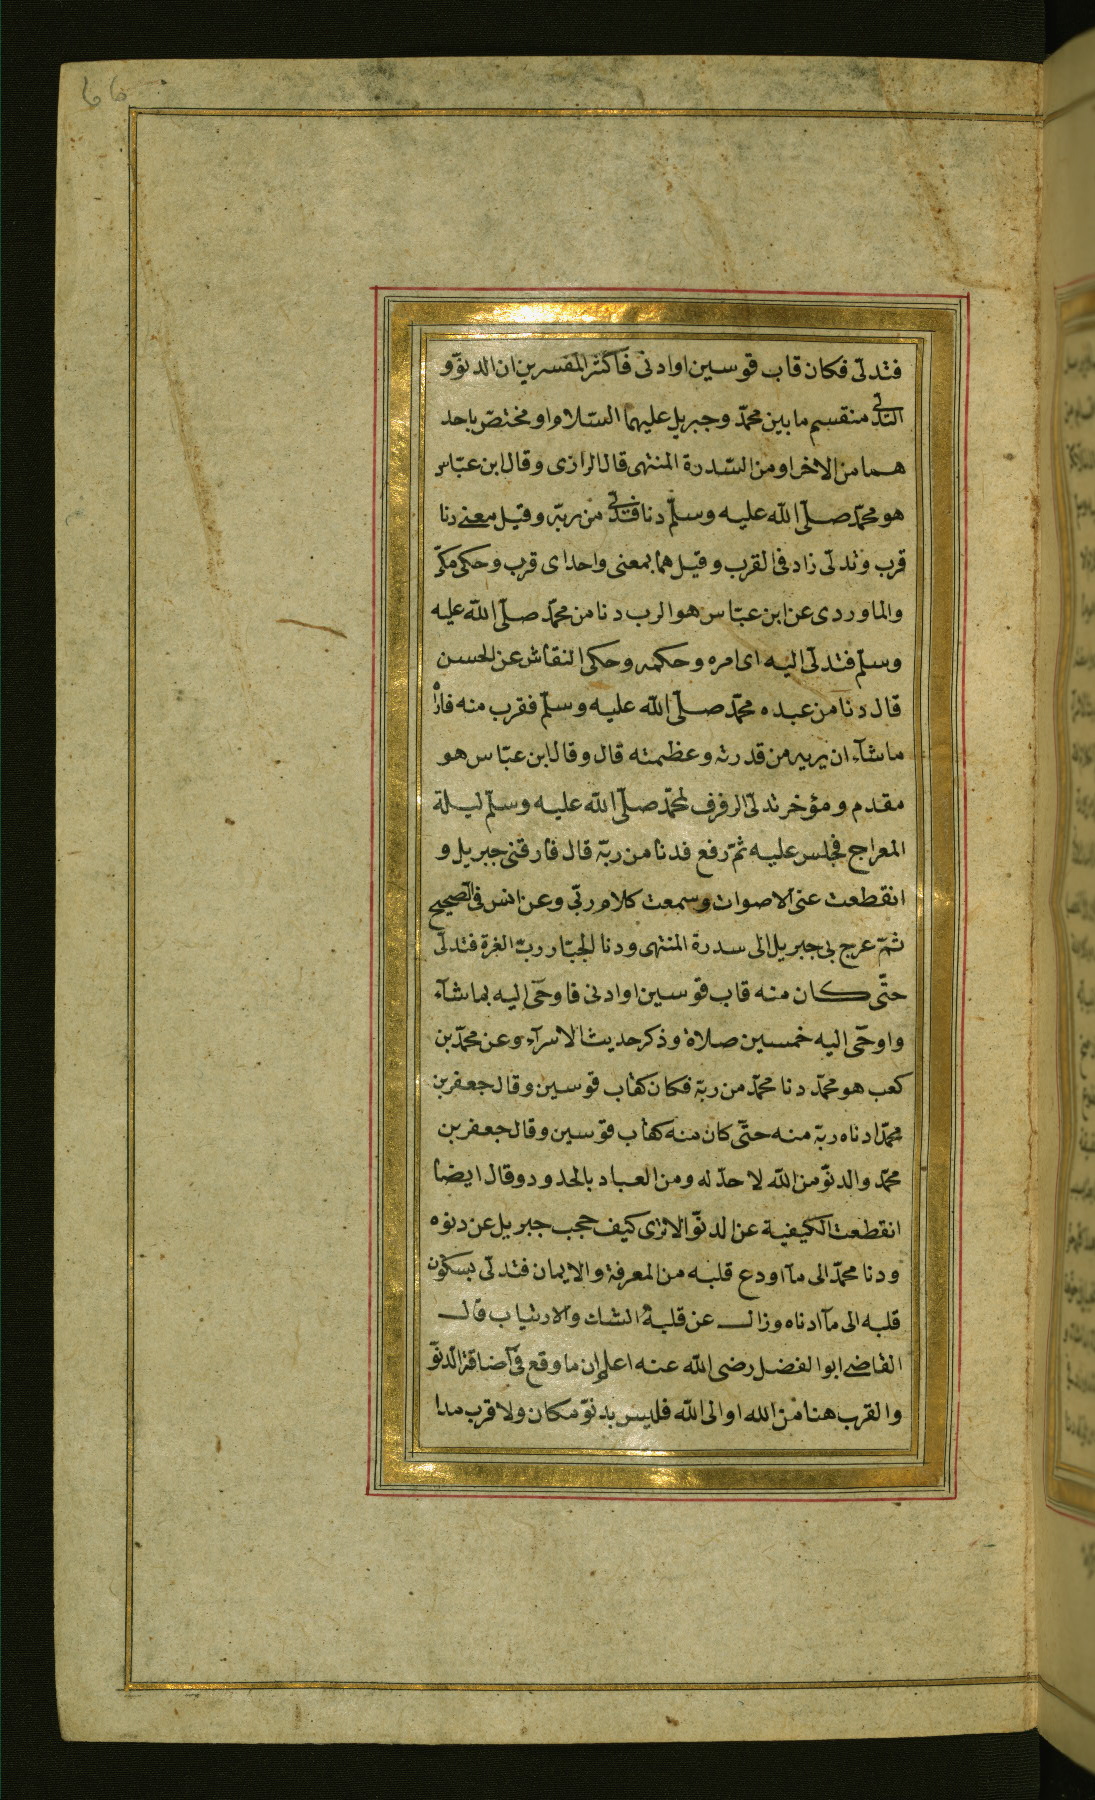 فتدلّى فكان قاب قوسين او ادنى فاكثر المفسرين ان الدنوّ و
التدلّى منقسم ما بين محمّد وجبريل عليهما السّلام او مختصّ باحد
هما من الاخر او من السّدرة المنتهى قال الرازى وقال ابن عبّاس
هو محمّد صلّى الله عليه وسلّم دنا فتدلّى من ربّه وقيل معنى دنا
قرب وتدلّى زاد فى القرب وقيل هما بمعنى واحد اى قرب وحكى مكّى
والماوردى عن ابن عبّاس هو الرب دنا من محمّد صلّى الله عليه
وسلّم فتدلّى اليه اى امره وحكمه وحكى النقاش عن الحسن
قال دنا من عبده محمّد صلّى الله عليه وسلّم فقرب منه فاراه
ما شآء ان يريه من قدرته وعظمته قال وقال ابن عبّاس هو
مقدم ومؤخر تدلّى الرفرف لمحمّد صلّى الله عليه وسلّم ليلة
المعراج فجلس عليه ثمّ رفع فدنا من ربّه قال فارقنى جبريل و
انقطعت عنى الاصوات وسمعت كلام ربّى وعن انس فى الصحيح
ثمّ عرج بى جبريل الى سدرة المنتهى ودنا الجبّار ربّ العزة فتدلّى
حتّى كان منه قاب قوسين او ادنى فاوحى اليه بما شآء
واوحى اليه خمسين صلاة وذكر حديث الاسرآء وعن محمّد بن
كعب هو محمّد دنا محمّد من ربّه فكان كقاب قوسين وقال جعفر بن
محمّد ادناه ربّه منه حتّى كان منه كقاب قوسين وقال جعفر بن
محمّد والدنوّ من الله لا حدّ له ومن العباد بالحدود وقال ايضا
انقطعت الكيفية عن الدنوّ الا ترى كيف حجب جبريل عن دنوه
ودنا محمّد الى مآ اودع قلبه من المعرفة والايمان فتدلّى بسكون
قلبه الى مآ ادناه وزال عن قلبه الشك والارتياب قال
القاضى ابو الفضل رضى الله عنه اعلم ان ما وقع فى اضافة الدنوّ
والقرب هنا من الله او الى الله فليس بدنوّ مكان ولا قرب مدا